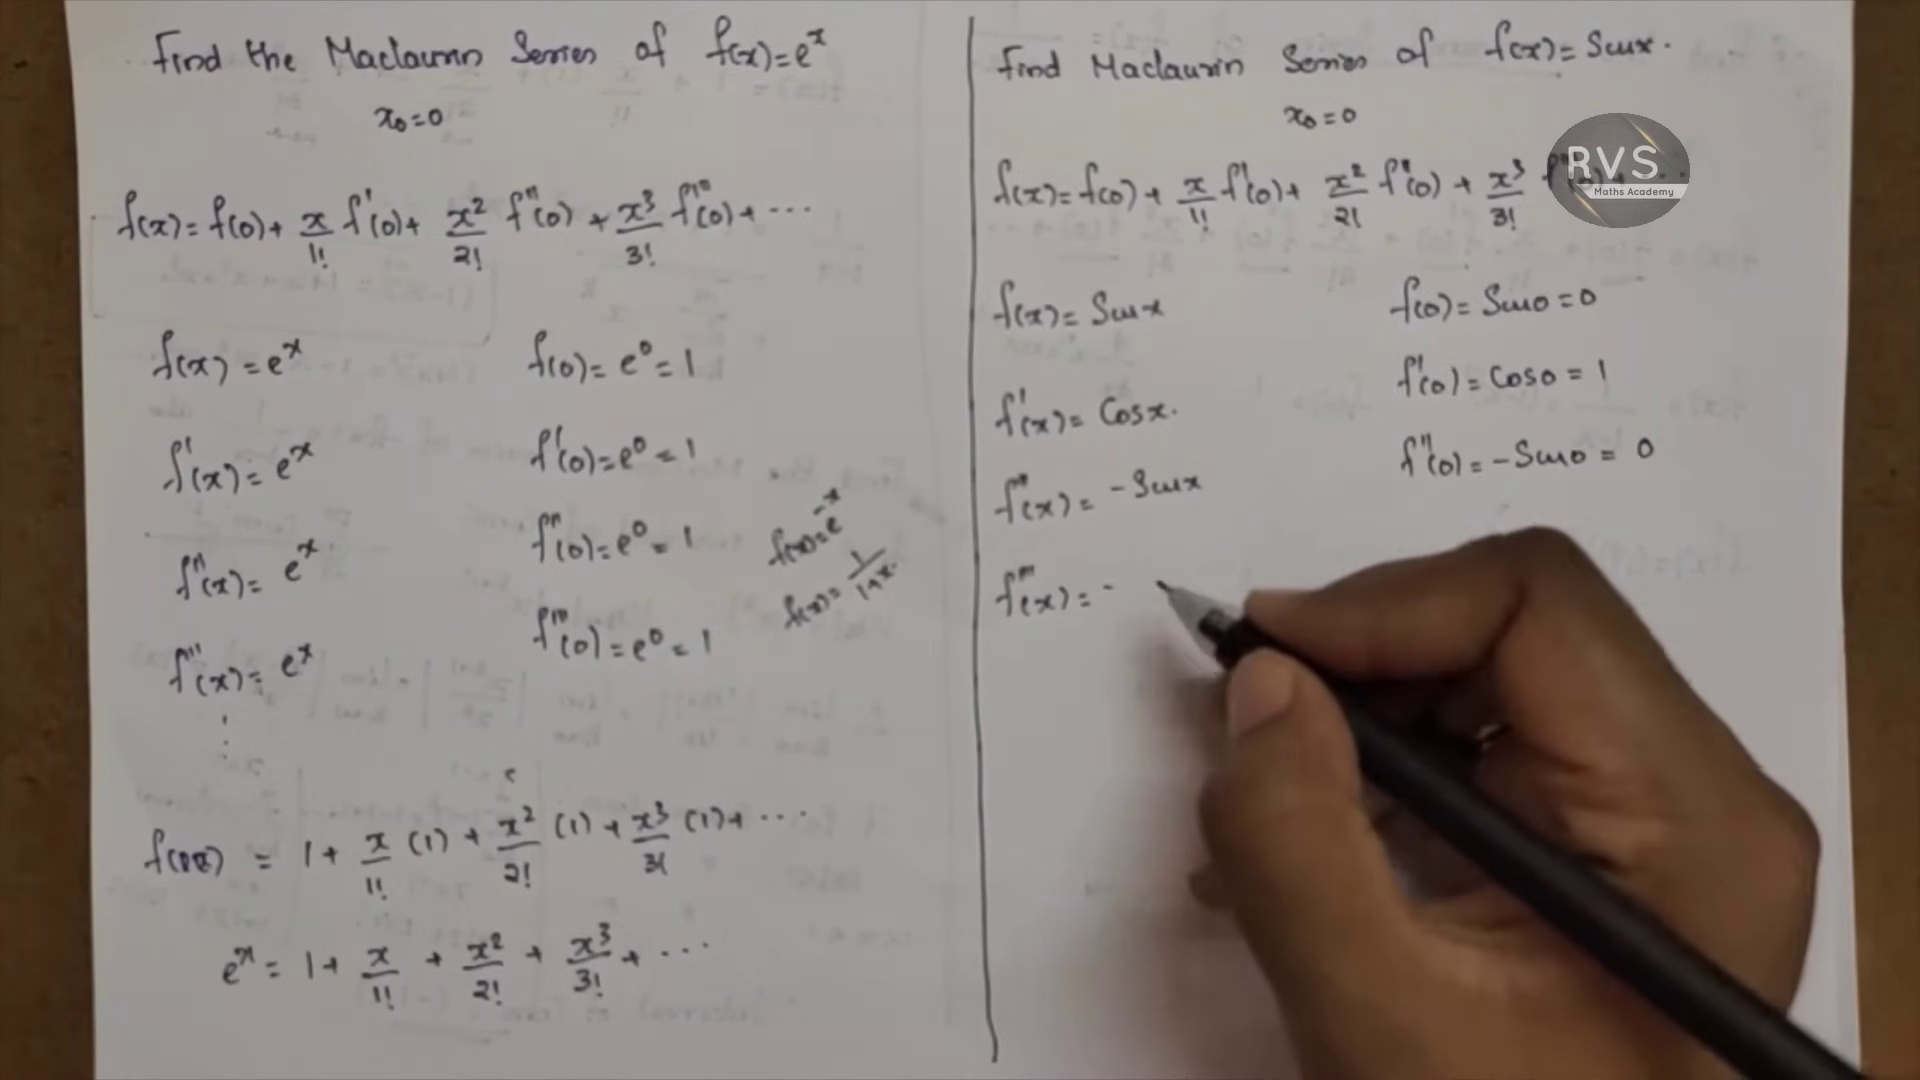 Find the Maclaurin Series of f(x)=e^x
x₀=0
f(x)=f(0)+ x/1! f'(0)+ x²/2! f''(0) + x³/3! f'''(0)+ ...
f(x)=e^x
f(0)=e⁰=1
f'(x)=e^x
f'(0)=e⁰=1
f''(x)= e^x
f''(0)=e⁰=1
f'''(x)= e^x
f'''(0)=e⁰=1
f(x)=e^-x
f(x)= 1/1+x.
= 1+ x/1! (1) + x²/2! (1) + x³/3! (1)+ ...
e^x = 1+ x/1! + x²/2! + x³/3! + ...
Find Maclaurin Series of f(x)=Sinx.
x₀=0
f(x)=f(0)+ x/1! f'(0)+ x²/2! f''(0) + x³/3!
RVS
Maths Academy
f(x)= Sinx
f(0)= Sin0=0
f'(x)= Cosx.
f'(0)= Cos0=1
f''(x)= -Sinx
f''(0)=-Sin0= 0
f'''(x)= -